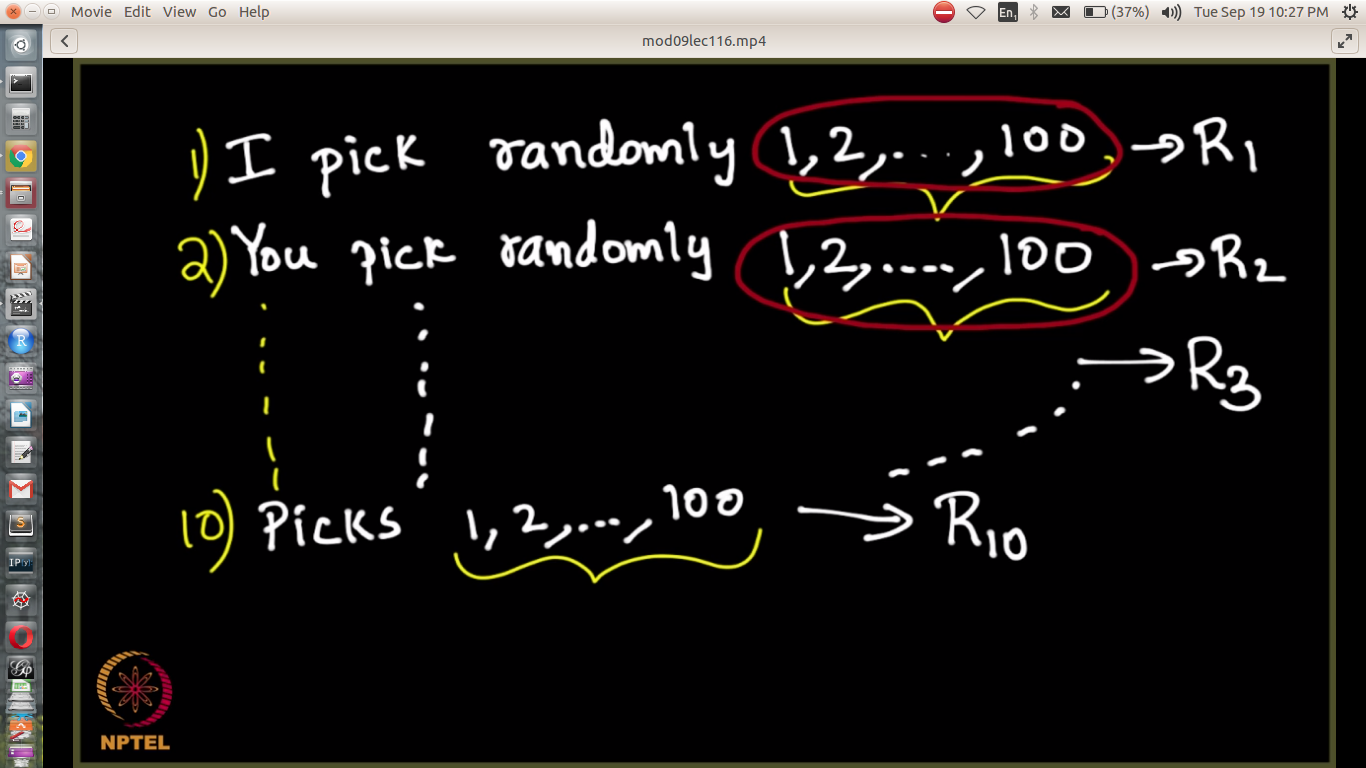 Movie Edit View Go Help En1 (37%) Tue Sep 19 10:27 PM
mod09lec116.mp4
1) I pick randomly 1, 2, ..., 100 → R1
2) You pick randomly 1, 2, ....., 100 → R2
→ R3
10) Picks 1, 2, ..., 100 → R10
NPTEL